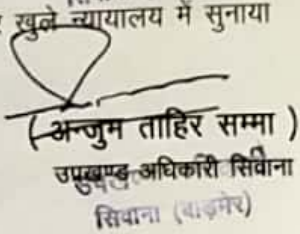 खुले न्यायालय में सुनाया
(अन्जुम ताहिर सम्मा )
उपखण्ड अधिकारी सिवाना
सिवाना (बाड़मेर)